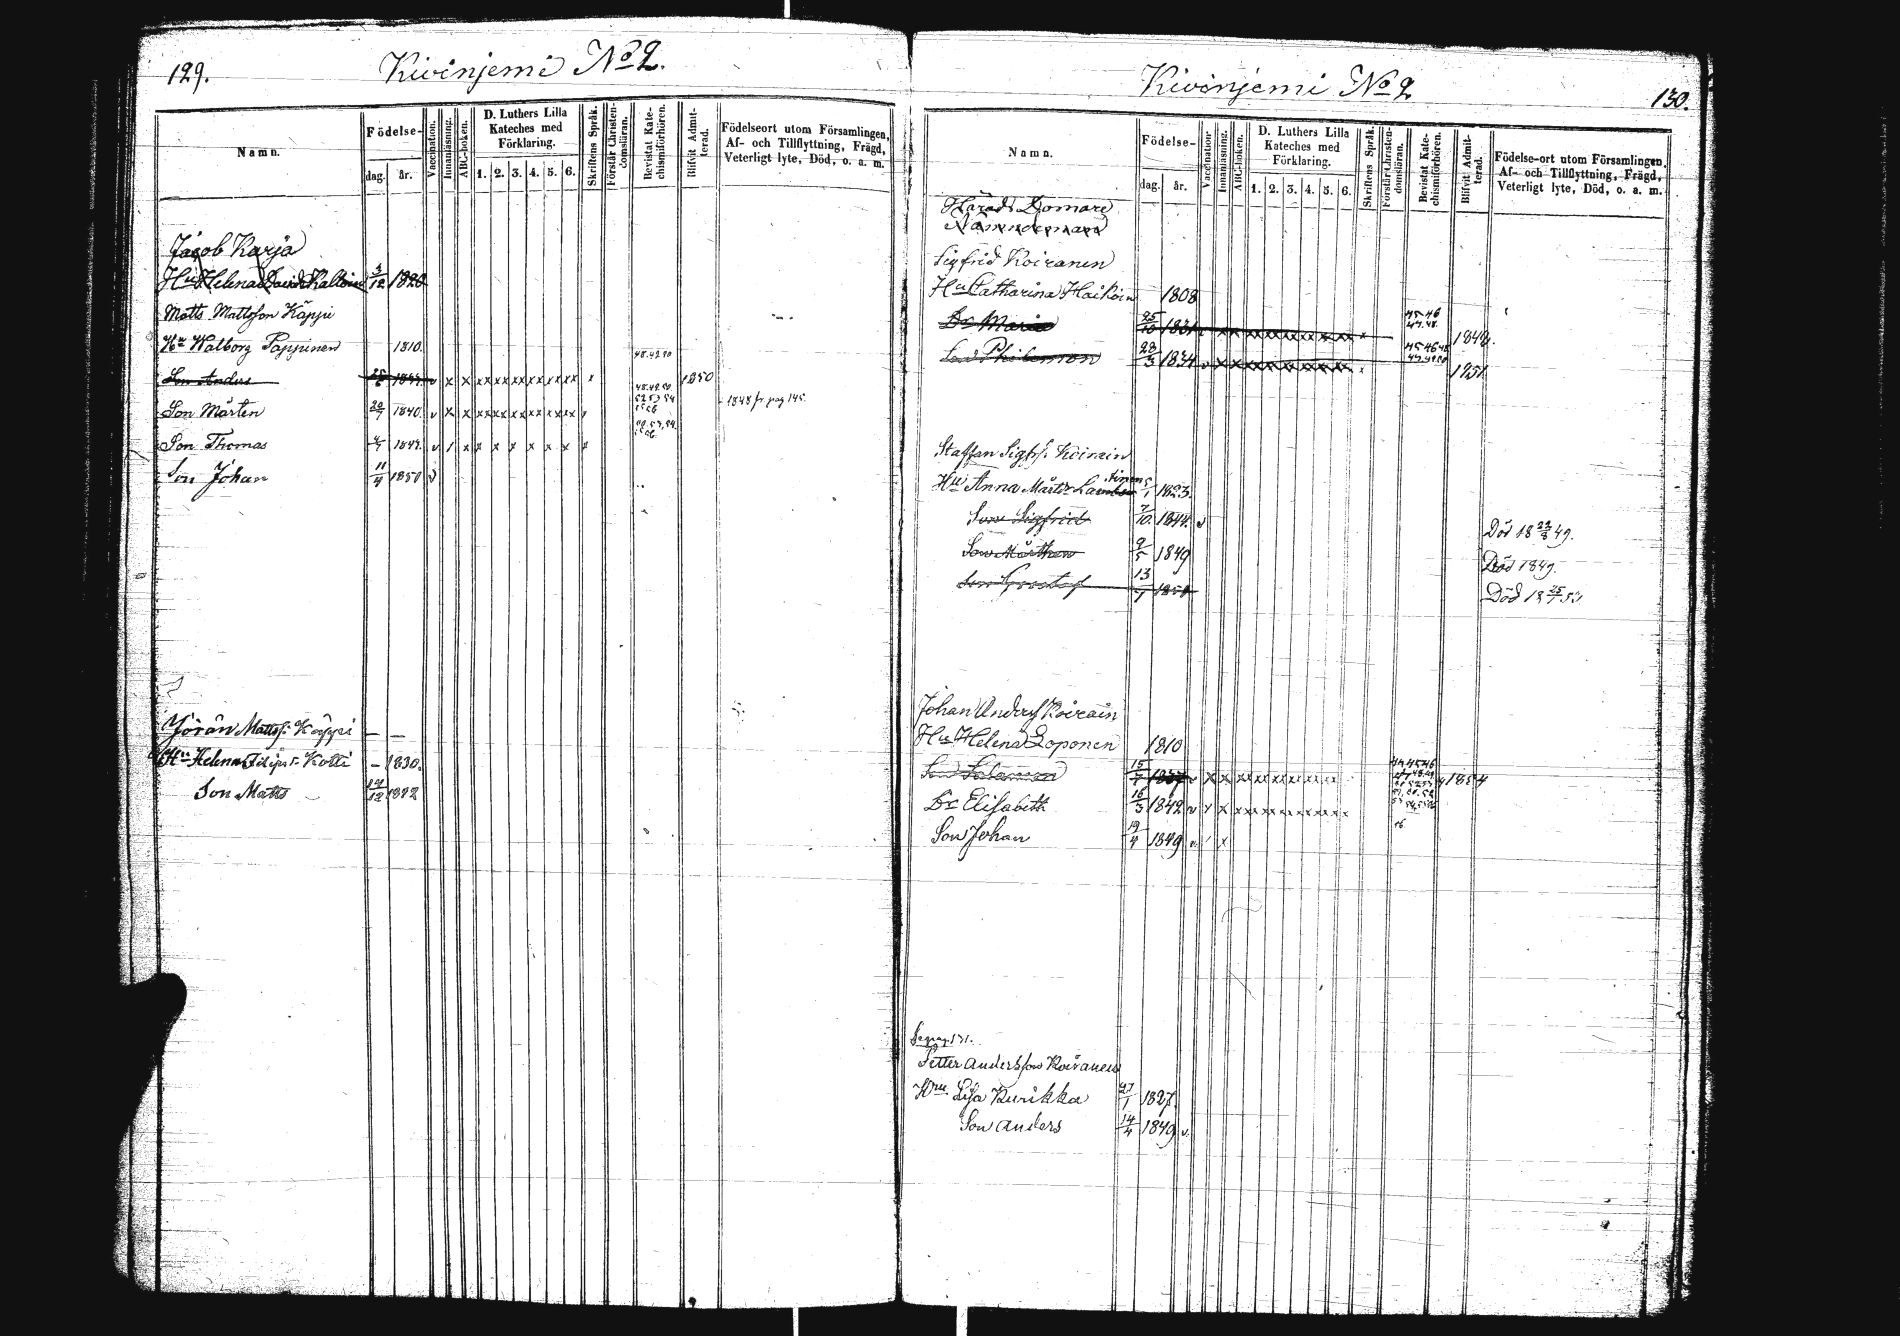 129.
Kivinjemi No 2.
Namn.
Födelse-
dag. år.
Vaccination.
Innanläsning.
ABC-boken.
D. Luthers Lilla
Kateches med
Förklaring.
1. 2. 3. 4. 5. 6.
Skriftens Språk.
Förstår Christen-
domsläran.
Bevistat Kate-
chismiförhören.
Blifvit Admit-
terad.
Födelseort utom Församlingen,
Af- och Tillflyttning, Frägd,
Veterligt lyte, Död, o. a. m.
Jacob Karja
Hu Helena 3/12 1820
Matts Mattsson Käppi
Hu Walborg Pappinen 1810.
Son Anders v x x xxxxxxxxxxxx x 48.49.50 1850
Son Mårten 20/7 1840. v x x xxxxxxxxxxxx x 1848 fr. pag 145.
Son Thomas v / x x x x x x x x
Son Johan 11/4 1850 v
Jöran Mattss: Käppi — —
Hu Helena Kotti – 1830.
Son Matts
130.
Kivinjemi No 2
Namn.
Födelse-
dag. år.
Vaccination.
Innanläsning.
ABC-boken.
D. Luthers Lilla
Kateches med
Förklaring.
1. 2. 3. 4. 5. 6.
Skriftens Språk.
Förstår Christen-
domsläran.
Bevistat Kate-
chismiförhören.
Blifvit Admit-
terad.
Födelse-ort utom Församlingen,
Af- och Tillflyttning, Frägd,
Veterligt lyte, Död, o. a. m.
Härads Domare
Nämndeman
Sigfrid Koiranen
Hu Catharina Haikoin 1808
Dr Maria 25/10 1831 45 46 47.48.
Son Philemon 28/3 1834 1851
Staffan Sigfr. Koirain
Hu Anna Mårtr 1823.
Son Sigfrid 7/10. 1844. v Död 18 22/8 49.
Son Mårthen 9/5 1849 Död 1849.
Son Gustaf 13/1 1851 Död
Johan Anderss Koirain
Hu Helena Loponen 1810
Son Salomon 15/7 1837 v x x 1854
Dr Elisabeth 16/3 1842 v x x
Son Johan 19/4 1849 v / x
Se pag 131.
Petter Andersson Koiranen
Hru Lisa Kurikka 27/1 1827
Son Anders 14/4 1849 v.